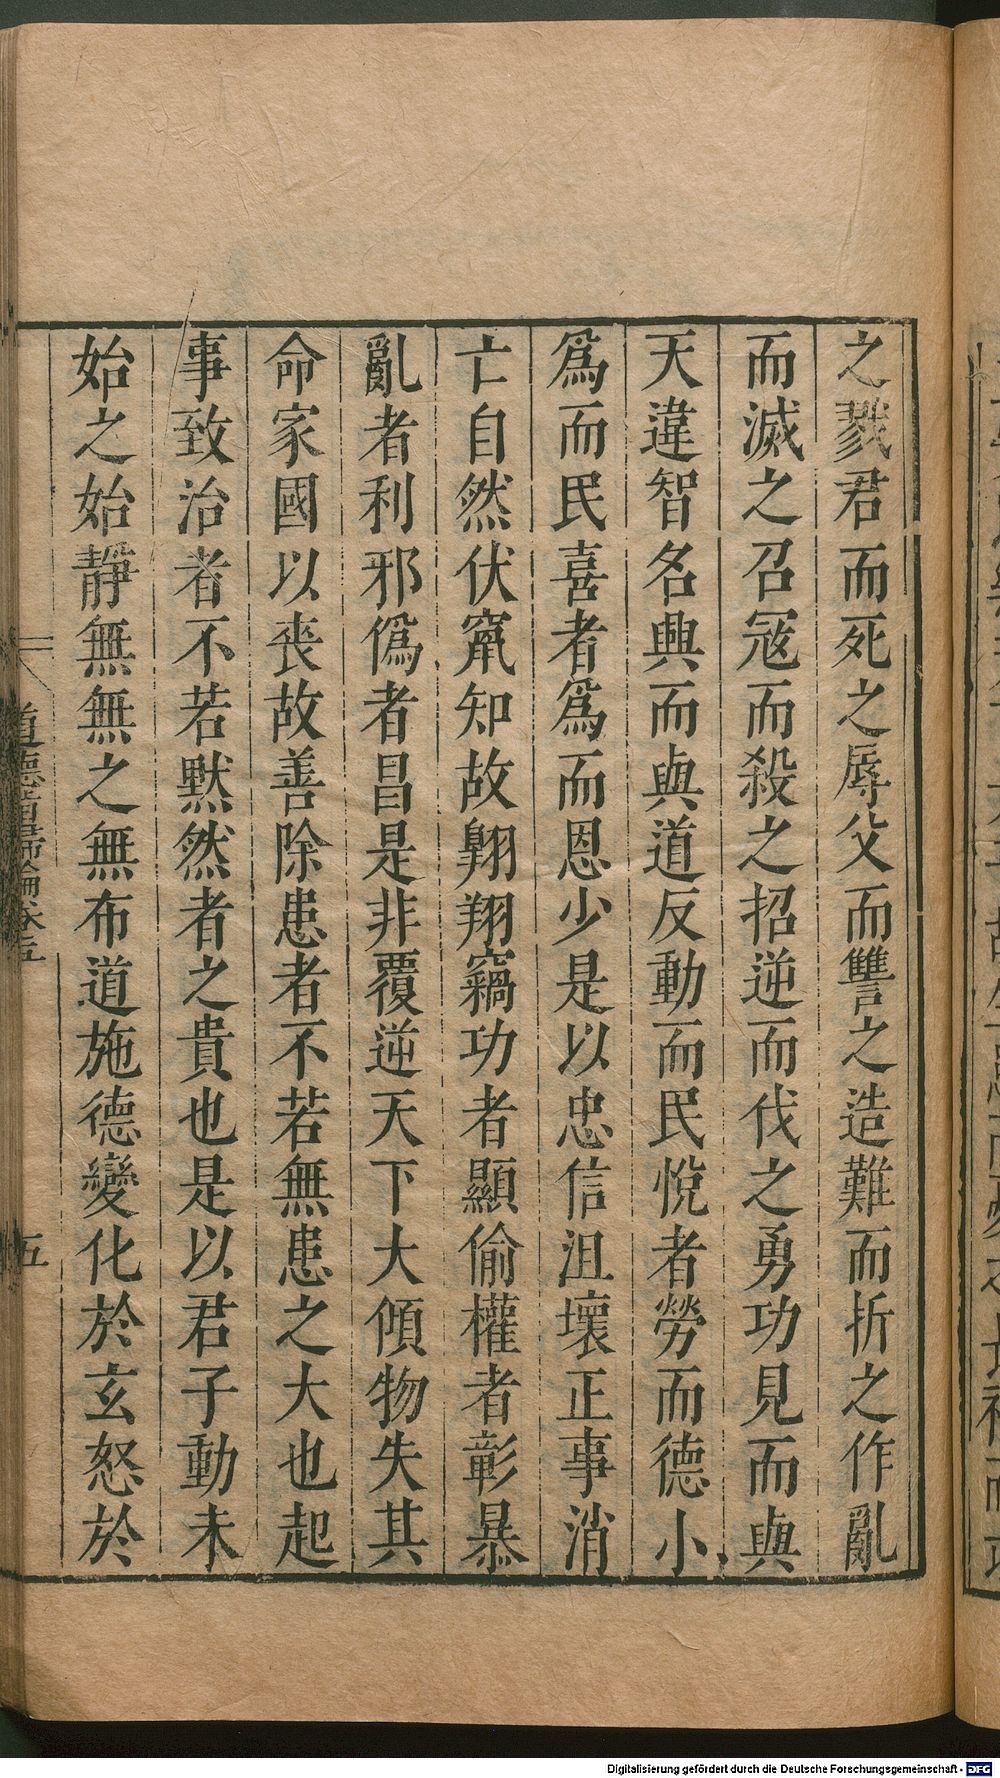 之戮君而死之辱父而讐之造難而折之作亂
而滅之召冦而殺之招逆而伐之勇功見而與
天違智名興而與道反動而民悅者勞而德小
爲而民喜者爲而恩少是以忠信沮壞正事消
亡自然伏竄知故翺翔竊功者顯偷權者彰暴
亂者利邪僞者昌是非覆逆天下大傾物失其
命家國以喪故善除患者不若無患之大也起
事致治者不若默然者之貴也是以君子動未
始之始靜無無之無布道施德變化於玄怒於
道德指歸論卷五
五
Digitalisierung gefördert durch die Deutsche Forschungsgemeinschaft - DFG